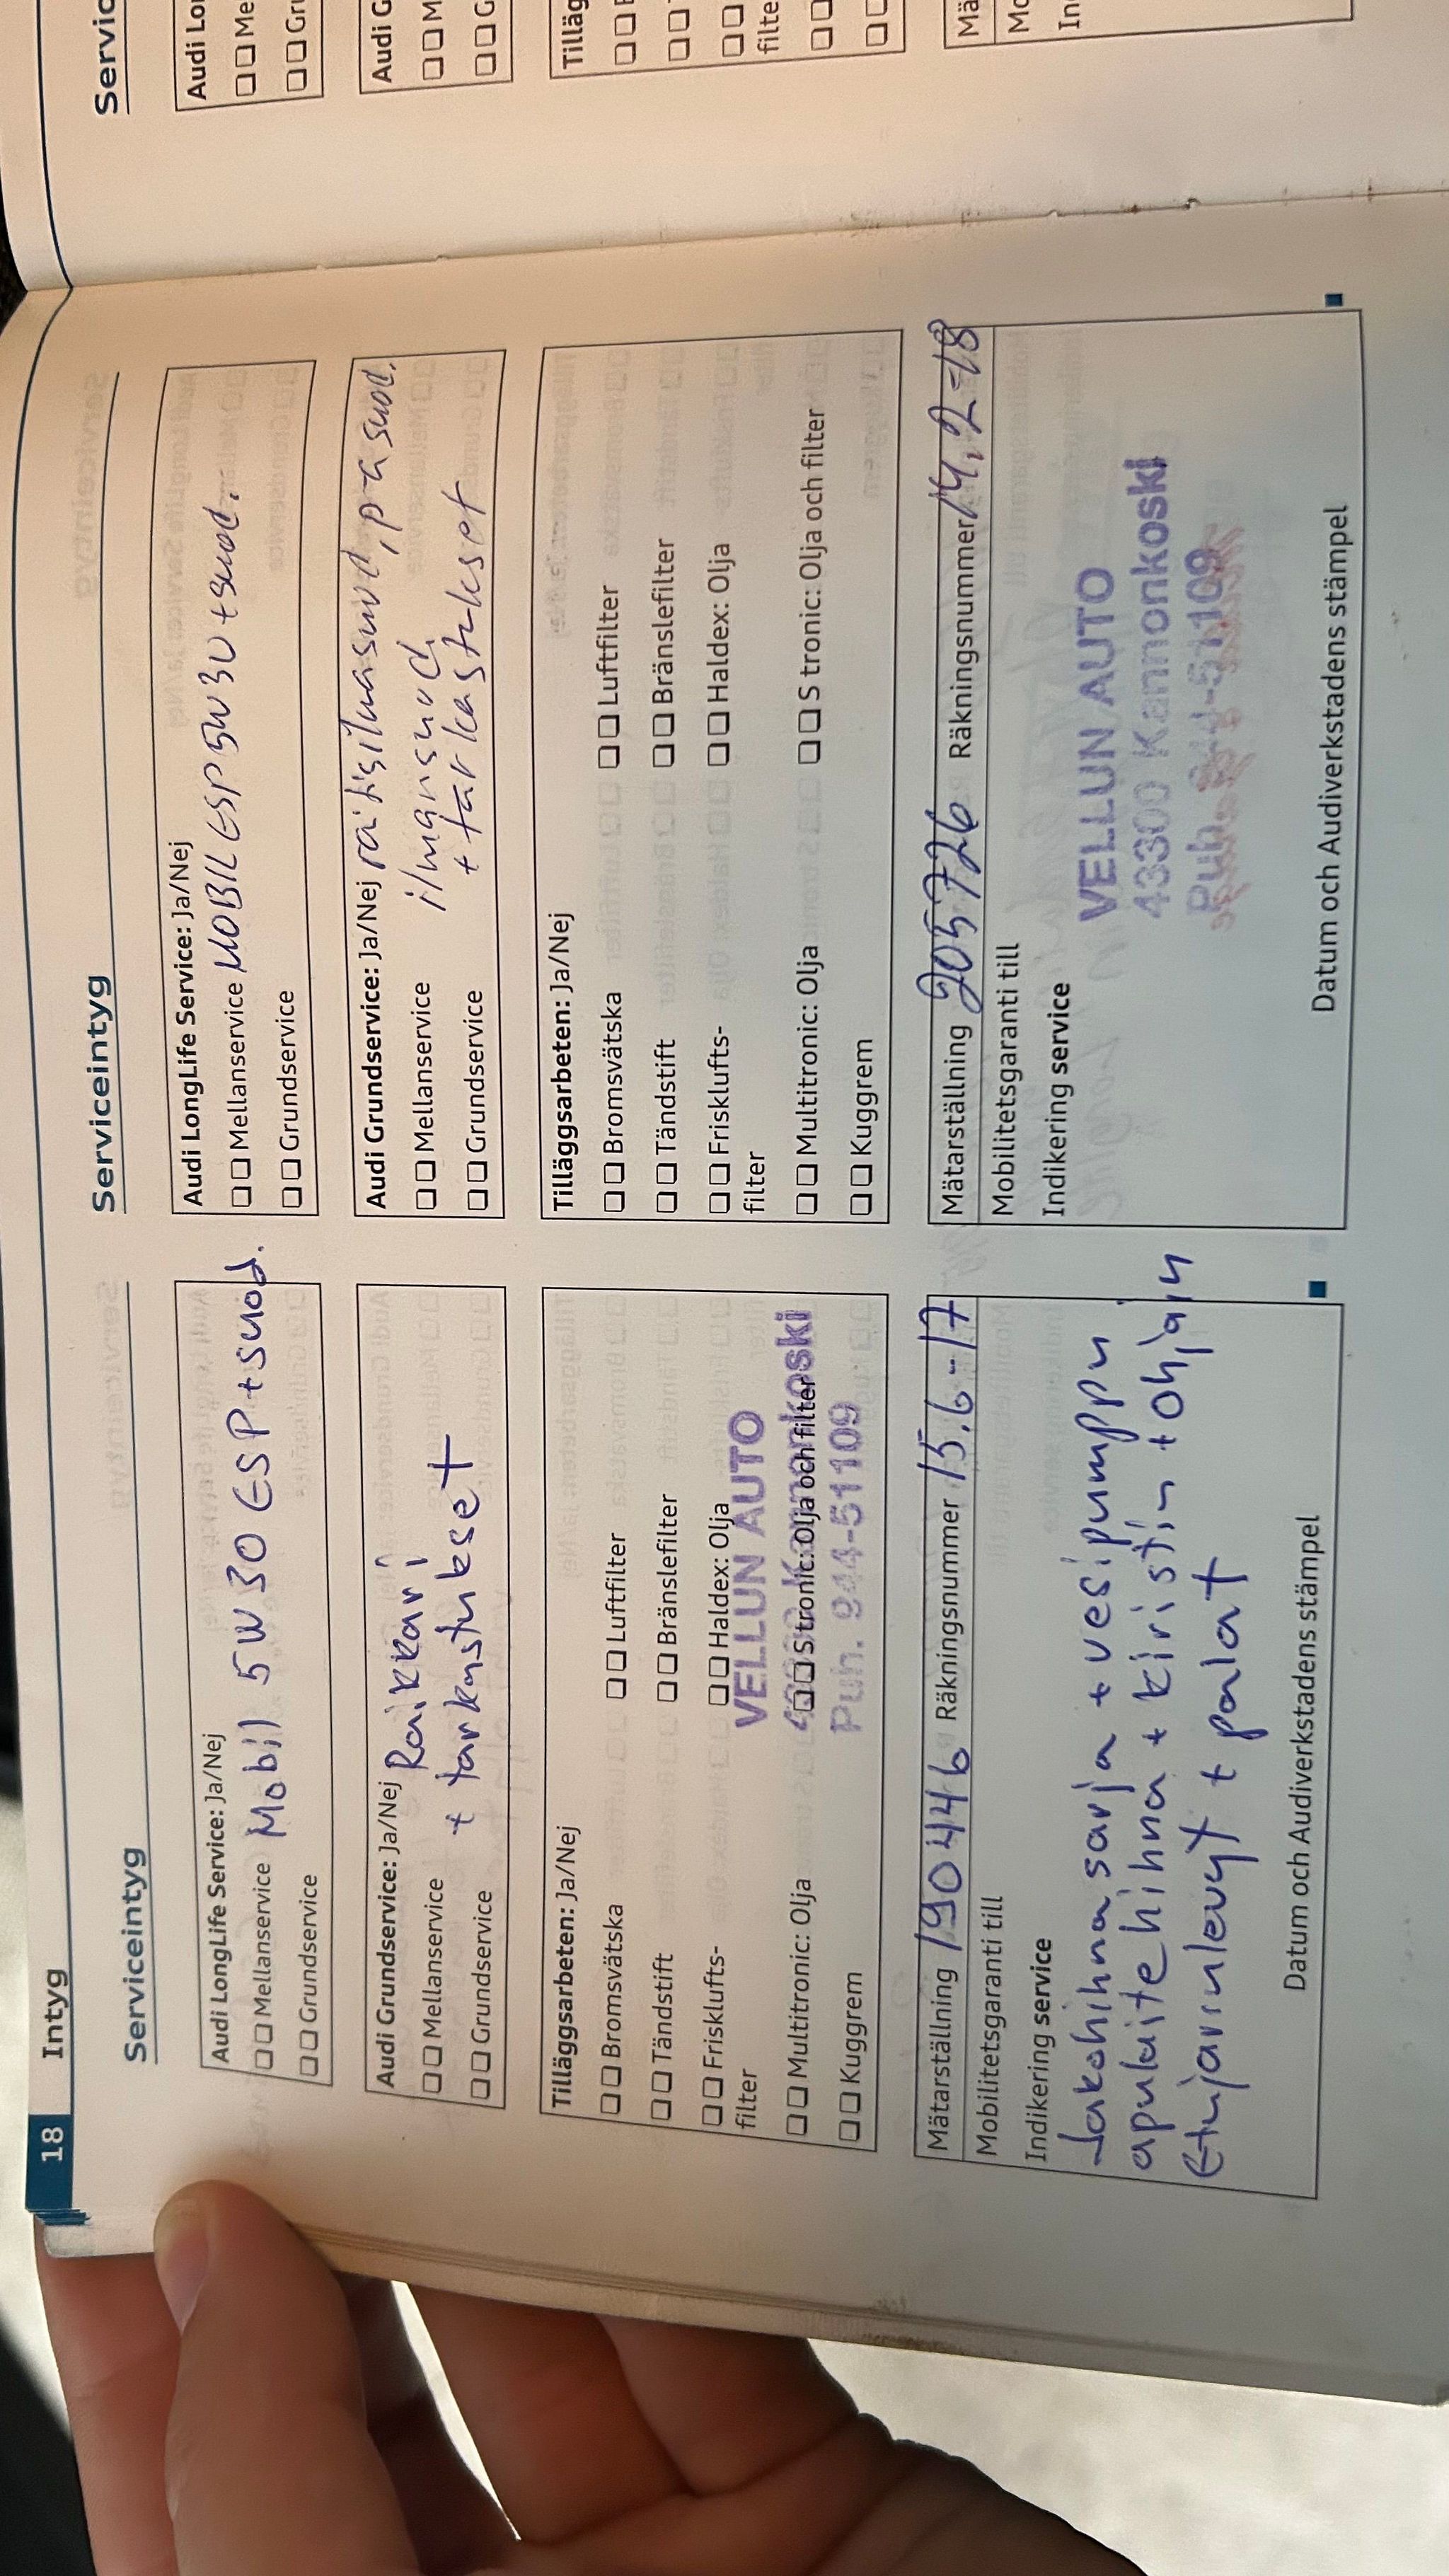 18 Intyg
Serviceintyg
Audi LongLife Service: Ja/Nej
❑ ❑ Mellanservice Mobil 5W30 ESP + suod.
❑ ❑ Grundservice
Audi Grundservice: Ja/Nej Raikkari
❑ ❑ Mellanservice + tarkastukset
❑ ❑ Grundservice
Tilläggsarbeten: Ja/Nej
❑ ❑ Bromsvätska ❑ ❑ Luftfilter
❑ ❑ Tändstift ❑ ❑ Bränslefilter
❑ ❑ Frisklufts- ❑ ❑ Haldex: Olja
filter
VELLUN AUTO
❑ ❑ Multitronic: Olja ❑ ❑ S tronic: Olja och filter
43300 Kannonkoski
❑ ❑ Kuggrem
Puh. 944-51109
Mätarställning 190446 Räkningsnummer 15.6-17
Mobilitetsgaranti till
Indikering service
Jakohihnasarja + vesipumppu
apulaitehihna + kiristin + ohjain
Etujarrulevyt + palat
Datum och Audiverkstadens stämpel
Serviceintyg
Audi LongLife Service: Ja/Nej
❑ ❑ Mellanservice MOBIL ESP 5W30 + suod.
❑ ❑ Grundservice
Audi Grundservice: Ja/Nej raitisilmasuod, p-a suod.
❑ ❑ Mellanservice ilmansuod
❑ ❑ Grundservice + tarkastukset
Tilläggsarbeten: Ja/Nej
❑ ❑ Bromsvätska ❑ ❑ Luftfilter
❑ ❑ Tändstift ❑ ❑ Bränslefilter
❑ ❑ Frisklufts- ❑ ❑ Haldex: Olja
filter
❑ ❑ Multitronic: Olja ❑ ❑ S tronic: Olja och filter
❑ ❑ Kuggrem
Mätarställning 205726 Räkningsnummer 14,2-18
Mobilitetsgaranti till
Indikering service
VELLUN AUTO
43300 Kannonkoski
Puh. 944-51109
Datum och Audiverkstadens stämpel
Servic
Audi Lo
❑ ❑ Me
❑ ❑ Gr
Audi G
❑ ❑ M
❑ ❑ G
Tilläg
filte
Mä
Mo
In